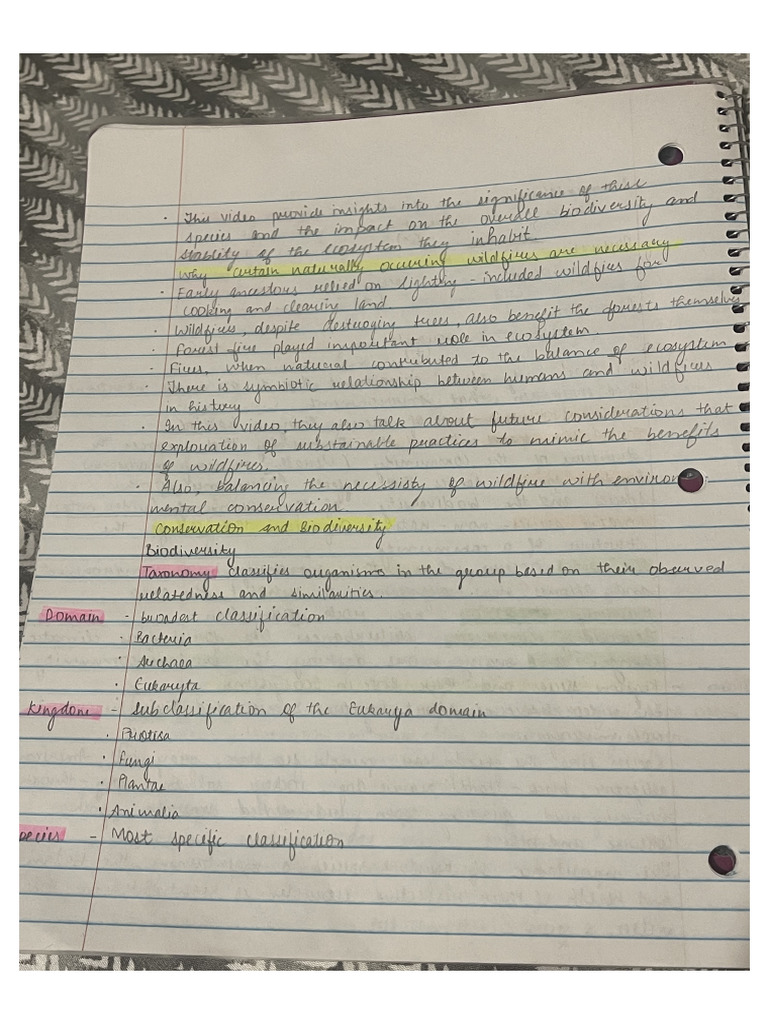 · This video provide insights into the significance of these
species and the impact on the overall biodiversity and
stability of the ecosystem they inhabit.
Why certain naturally occuring wildfires are necessary
· Early ancestors relied on lighting - included wildfires for
cooking and clearing land
· Wildfires, despite destroying trees, also benefit the forests themselves
· Forest fire played important role in ecosystem.
· Fires, when natural contributed to the balance of ecosystem
· There is symbiotic relationship between humans and wildfires
in history
· In this video, they also talk about future considerations that
exploration of substainable practices to mimic the benefits
of wildfires.
· Also, balancing the necessisty of wildfire with environ
mental conservation.
Conservation and Biodiversity
Biodiversity
Taxonomy classifies organisms in the group based on their observed
relatedness and similarities.
Domain - broadest classification
· Bacteria
· Archaea
· Eukaryta
Kingdome - subclassification of the Eukarya domain
· Protisa
· Fungi
· Plantae
· Animalia
pecies - Most specific classification